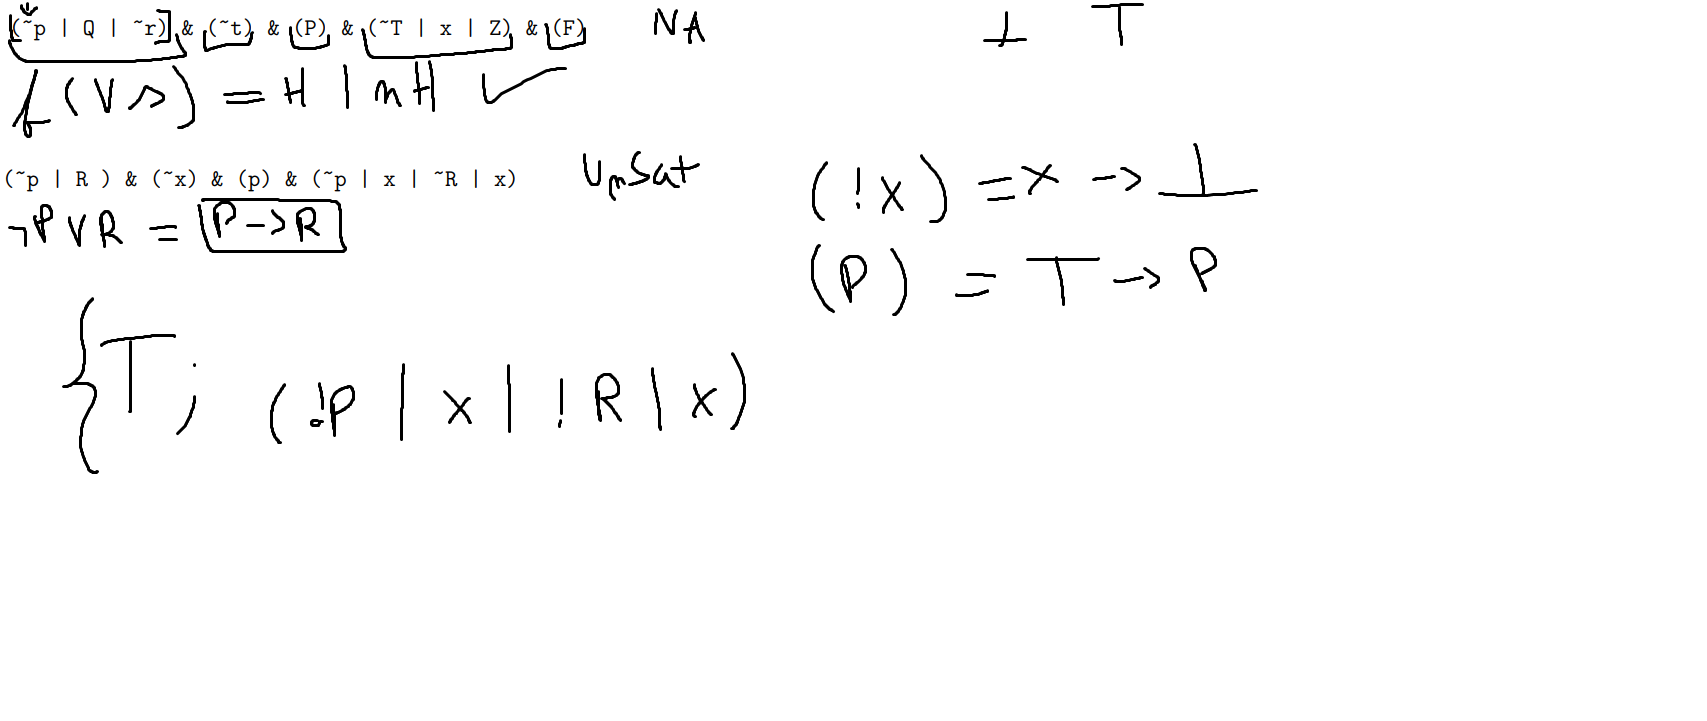 (~p | Q | ~r) & (~t) & (P) & (~T | x | Z) & (F) NA ⊥ T
f(Vs) = H | nH ✓
(~p | R ) & (~x) & (p) & (~p | x | ~R | x) UnSat
(!x) = x -> ⊥
¬P V R = P -> R
(P) = T -> P
{ T ; (!P | x | !R | x)